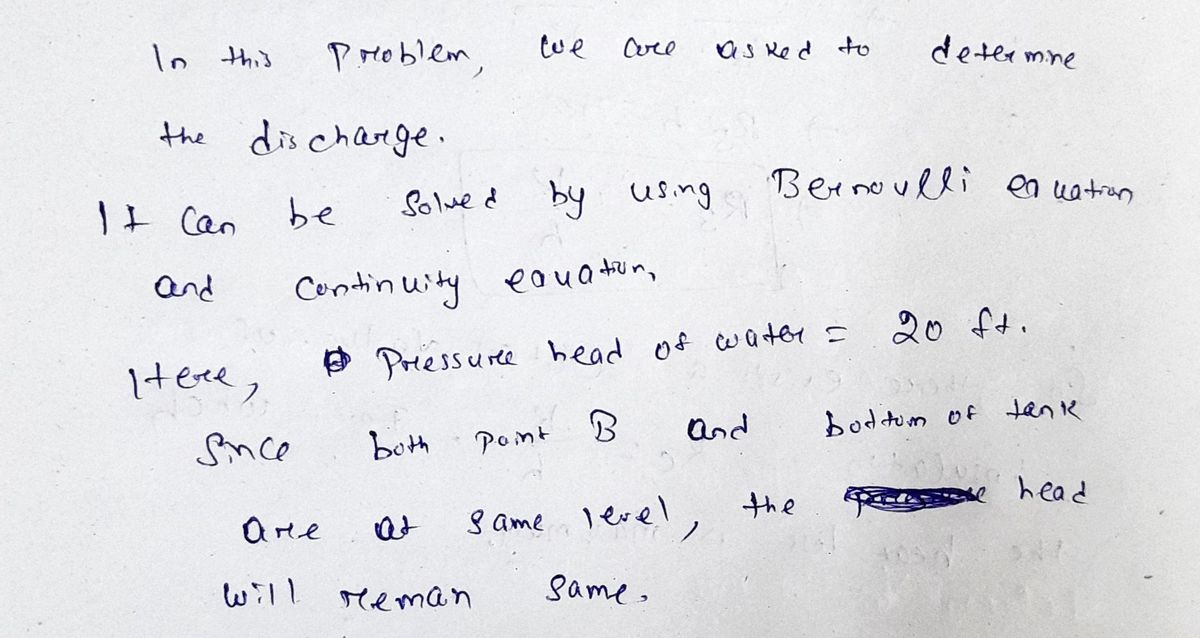 In this problem, we are asked to determine
the discharge.
It can be solved by using Bernoulli equation
and continuity equation,
Here, Pressure head of water = 20 ft.
Since both point B and bottom of tank
are at same level, the head
will reman same.